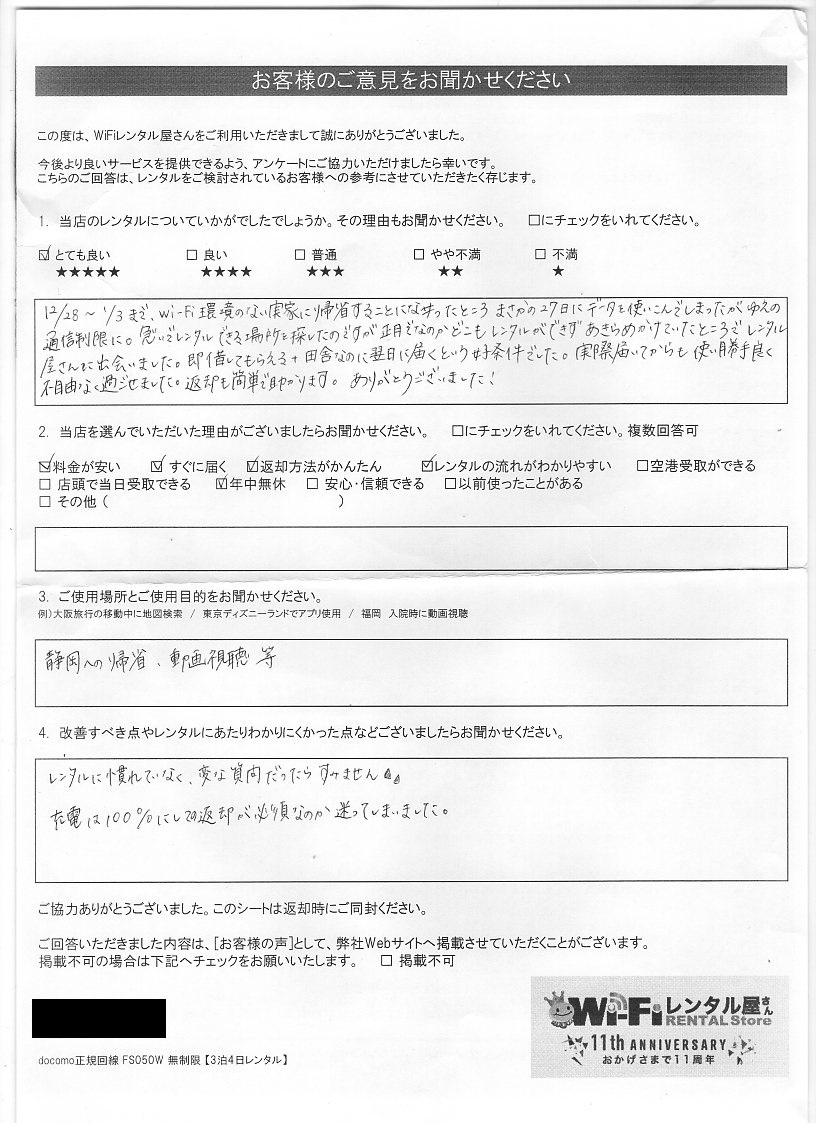 お客様のご意見をお聞かせください
この度は、WiFiレンタル屋さんをご利用いただきまして誠にありがとうございました。
今後より良いサービスを提供できるよう、アンケートにご協力いただけましたら幸いです。
こちらのご回答は、レンタルをご検討されているお客様への参考にさせていただきたく存じます。
1. 当店のレンタルについていかがでしたでしょうか。その理由もお聞かせください。 □にチェックをいれてください。
☑ とても良い □ 良い □ 普通 □ やや不満 □ 不満
★★★★★ ★★★★ ★★★ ★★ ★
12/28～1/3まで、Wi-Fi環境のない実家に帰省することになったところまさかの27日にデータを使いこんでしまったがゆえの
通信制限に。急いでレンタルできる場所を探したのですが正月だなのかどこもレンタルができずあきらめかけていたところでレンタル
屋さんに出会いました。即借してもらえる+田舎なのに翌日に届くという好条件でした。実際届いてからも使い勝手良く
不自由なく過ごせました。返却も簡単で助かります。ありがとうございました!
2. 当店を選んでいただいた理由がございましたらお聞かせください。 □にチェックをいれてください。複数回答可
☑料金が安い ☑ すぐに届く ☑返却方法がかんたん ☑レンタルの流れがわかりやすい □空港受取ができる
□ 店頭で当日受取できる ☑年中無休 □ 安心・信頼できる □以前使ったことがある
□ その他 ( )
3. ご使用場所とご使用目的をお聞かせください。
例)大阪旅行の移動中に地図検索 / 東京ディズニーランドでアプリ使用 / 福岡 入院時に動画視聴
静岡への帰省、動画視聴 等
4. 改善すべき点やレンタルにあたりわかりにくかった点などございましたらお聞かせください。
レンタルに慣れていなく、変な質問だったらすみません
充電は100%にしての返却が必須なのか迷ってしまいました。
ご協力ありがとうございました。このシートは返却時にご同封ください。
ご回答いただきました内容は、[お客様の声]として、弊社Webサイトへ掲載させていただくことがございます。
掲載不可の場合は下記へチェックをお願いいたします。 □ 掲載不可
Wi-Fiレンタル屋さん
RENTAL Store
11th ANNIVERSARY
おかげさまで11周年
docomo正規回線 FS050W 無制限【3泊4日レンタル】